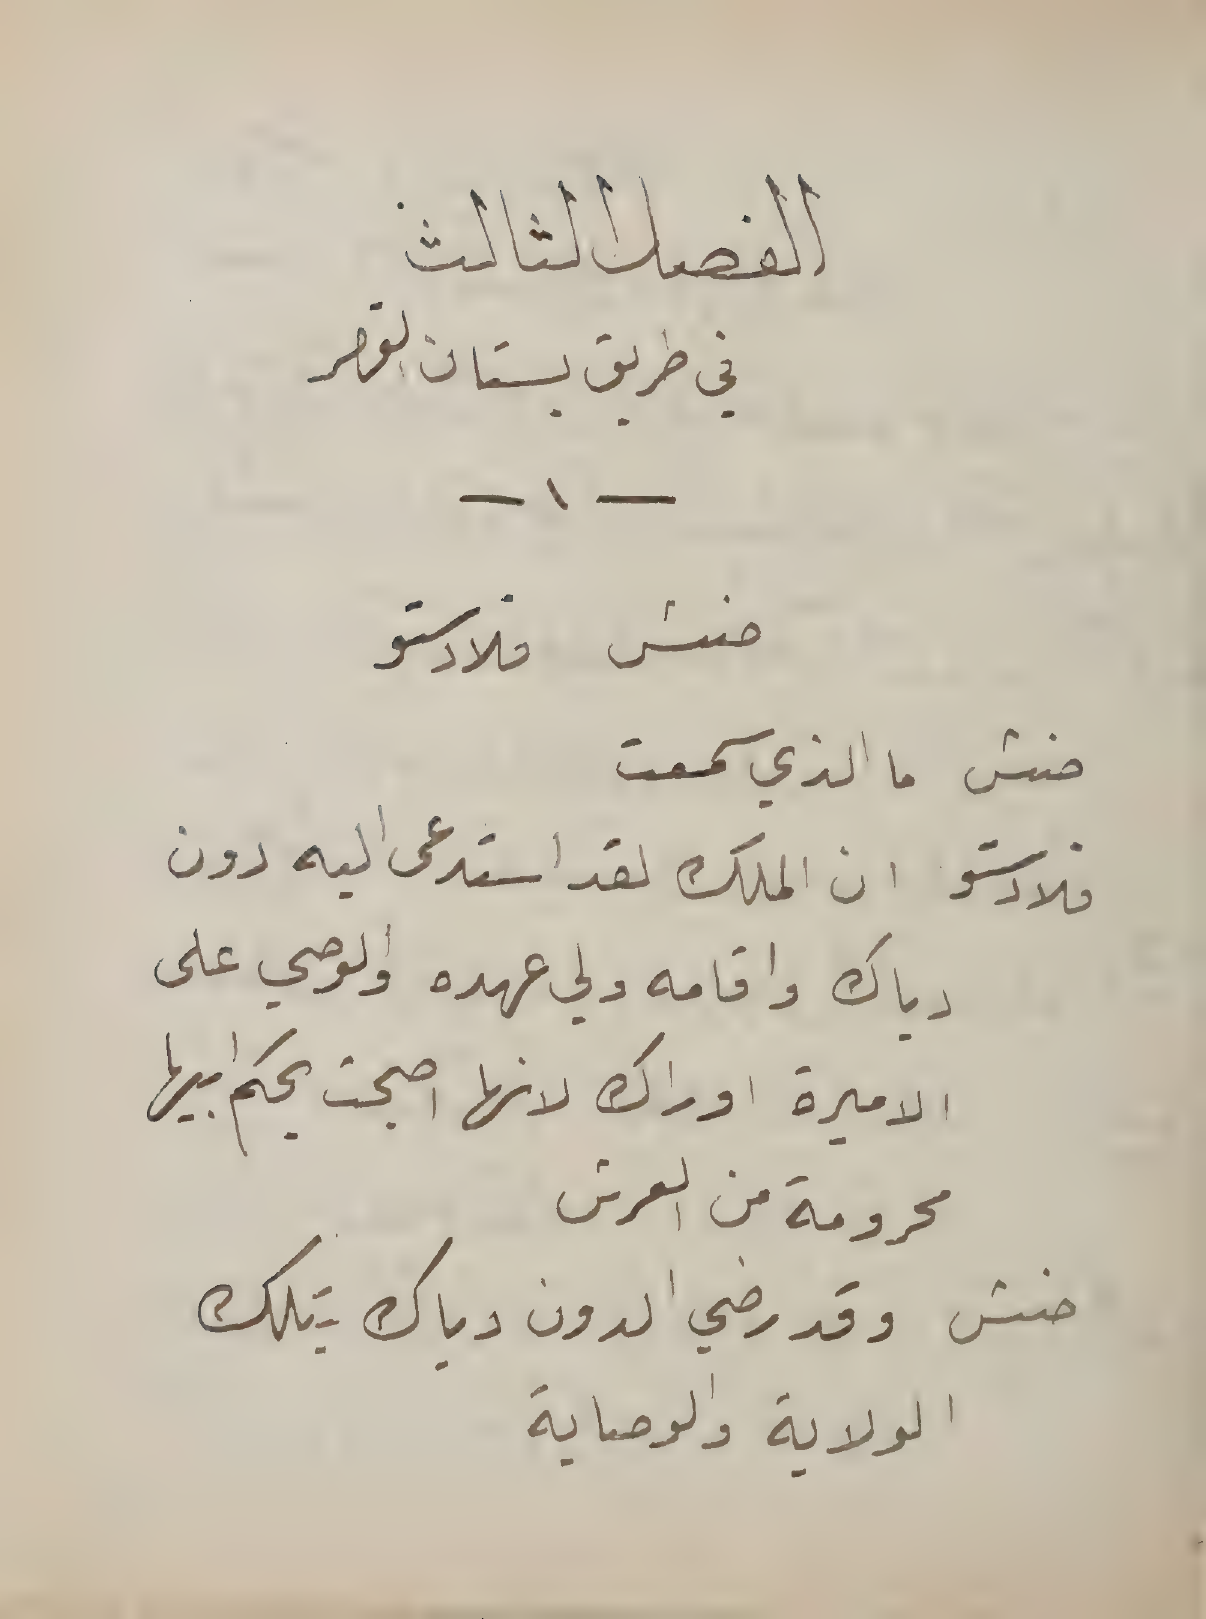 الفصل الثالث
في طريق بستان القصر
— ١ —
حنش فلادستو
حنش ما الذي سمعت
فلادستو ان الملك لقد استدعى اليه دون
دياك واقامه ولي عهده والوصي على
الاميرة اوراك لانها اصبحت بحكم ابيها
محرومة من العرش
حنش وقد رضي الدون دياك بتلك
الولاية والوصاية